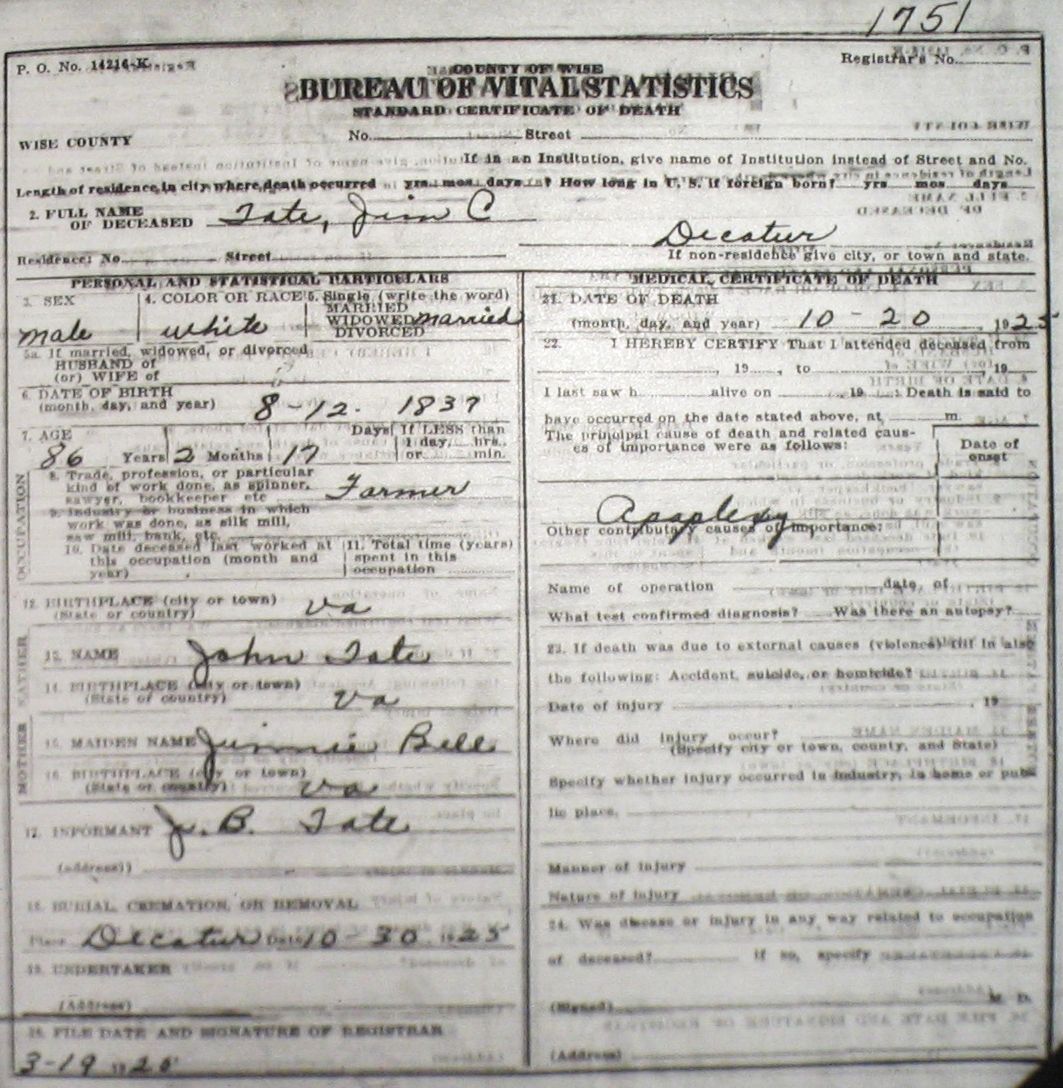 1751
P. O. No. 14216-K
Registrar's No.
COUNTY OF WISE
BUREAU OF VITAL STATISTICS
STANDARD CERTIFICATE OF DEATH
WISE COUNTY
No. Street
If in an Institution, give name of Institution instead of Street and No.
Length of residence in city where death occurred yrs mos. days ? How long in U. S. if foreign born? yrs mos. days
2. FULL NAME OF DECEASED Tate, Jim C
Decatur
Residence: No Street If non-residence give city, or town and state.
PERSONAL AND STATISTICAL PARTICULARS
3. SEX
male
4. COLOR OR RACE
white
5. Single (write the word)
MARRIED
WIDOWED married
DIVORCED
5a. If married, widowed, or divorced
HUSBAND of
(or) WIFE of
6. DATE OF BIRTH
(month, day, and year) 8-12. 1837
7. AGE
Days If LESS than
1 day, hrs.
86 Years 2 Months 17 or min.
OCCUPATION
8. Trade, profession, or particular
kind of work done, as spinner,
sawyer, bookkeeper etc Farmer
9. Industry or business in which
work was done, as silk mill,
saw mill, bank, etc.
10. Date deceased last worked at
this occupation (month and
year)
11. Total time (years)
spent in this
occupation
12. BIRTHPLACE (city or town)
(State or country) Va
FATHER
13. NAME John Tate
14. BIRTHPLACE (city or town)
(State of country) Va
MOTHER
15. MAIDEN NAME Jimmie Bell
16. BIRTHPLACE (city or town)
(State or country) Va
17. INFORMANT J. B. Tate
(address)
18. BURIAL, CREMATION, OR REMOVAL
Place Decatur Date 10-30 1925
19. UNDERTAKER
(Address)
20. FILE DATE AND SIGNATURE OF REGISTRAR
3-19 1925
MEDICAL CERTIFICATE OF DEATH
21. DATE OF DEATH
(month, day, and year) 10-20, 1925
22. I HEREBY CERTIFY That I attended deceased from
, 19 , to 19
I last saw h alive on , 19 : Death is said to
have occurred on the date stated above, at m.
The principal cause of death and related caus-
es of importance were as follows:
Date of
onset
Apoplexy
Other contributary causes of importance:
Name of operation date of
What test confirmed diagnosis? Was there an autopsy?
23. If death was due to external causes (violence) fill in also
the following: Accident, suicide, or homicide?
Date of injury , 19
Where did injury occur?
(Specify city or town, county, and State)
Specify whether injury occurred in industry, in home or pub
lic place.
Manner of injury
Nature of injury
24. Was disease or injury in any way related to occupation
of deceased? If so, specify
(Signed) M. D.
(Address)